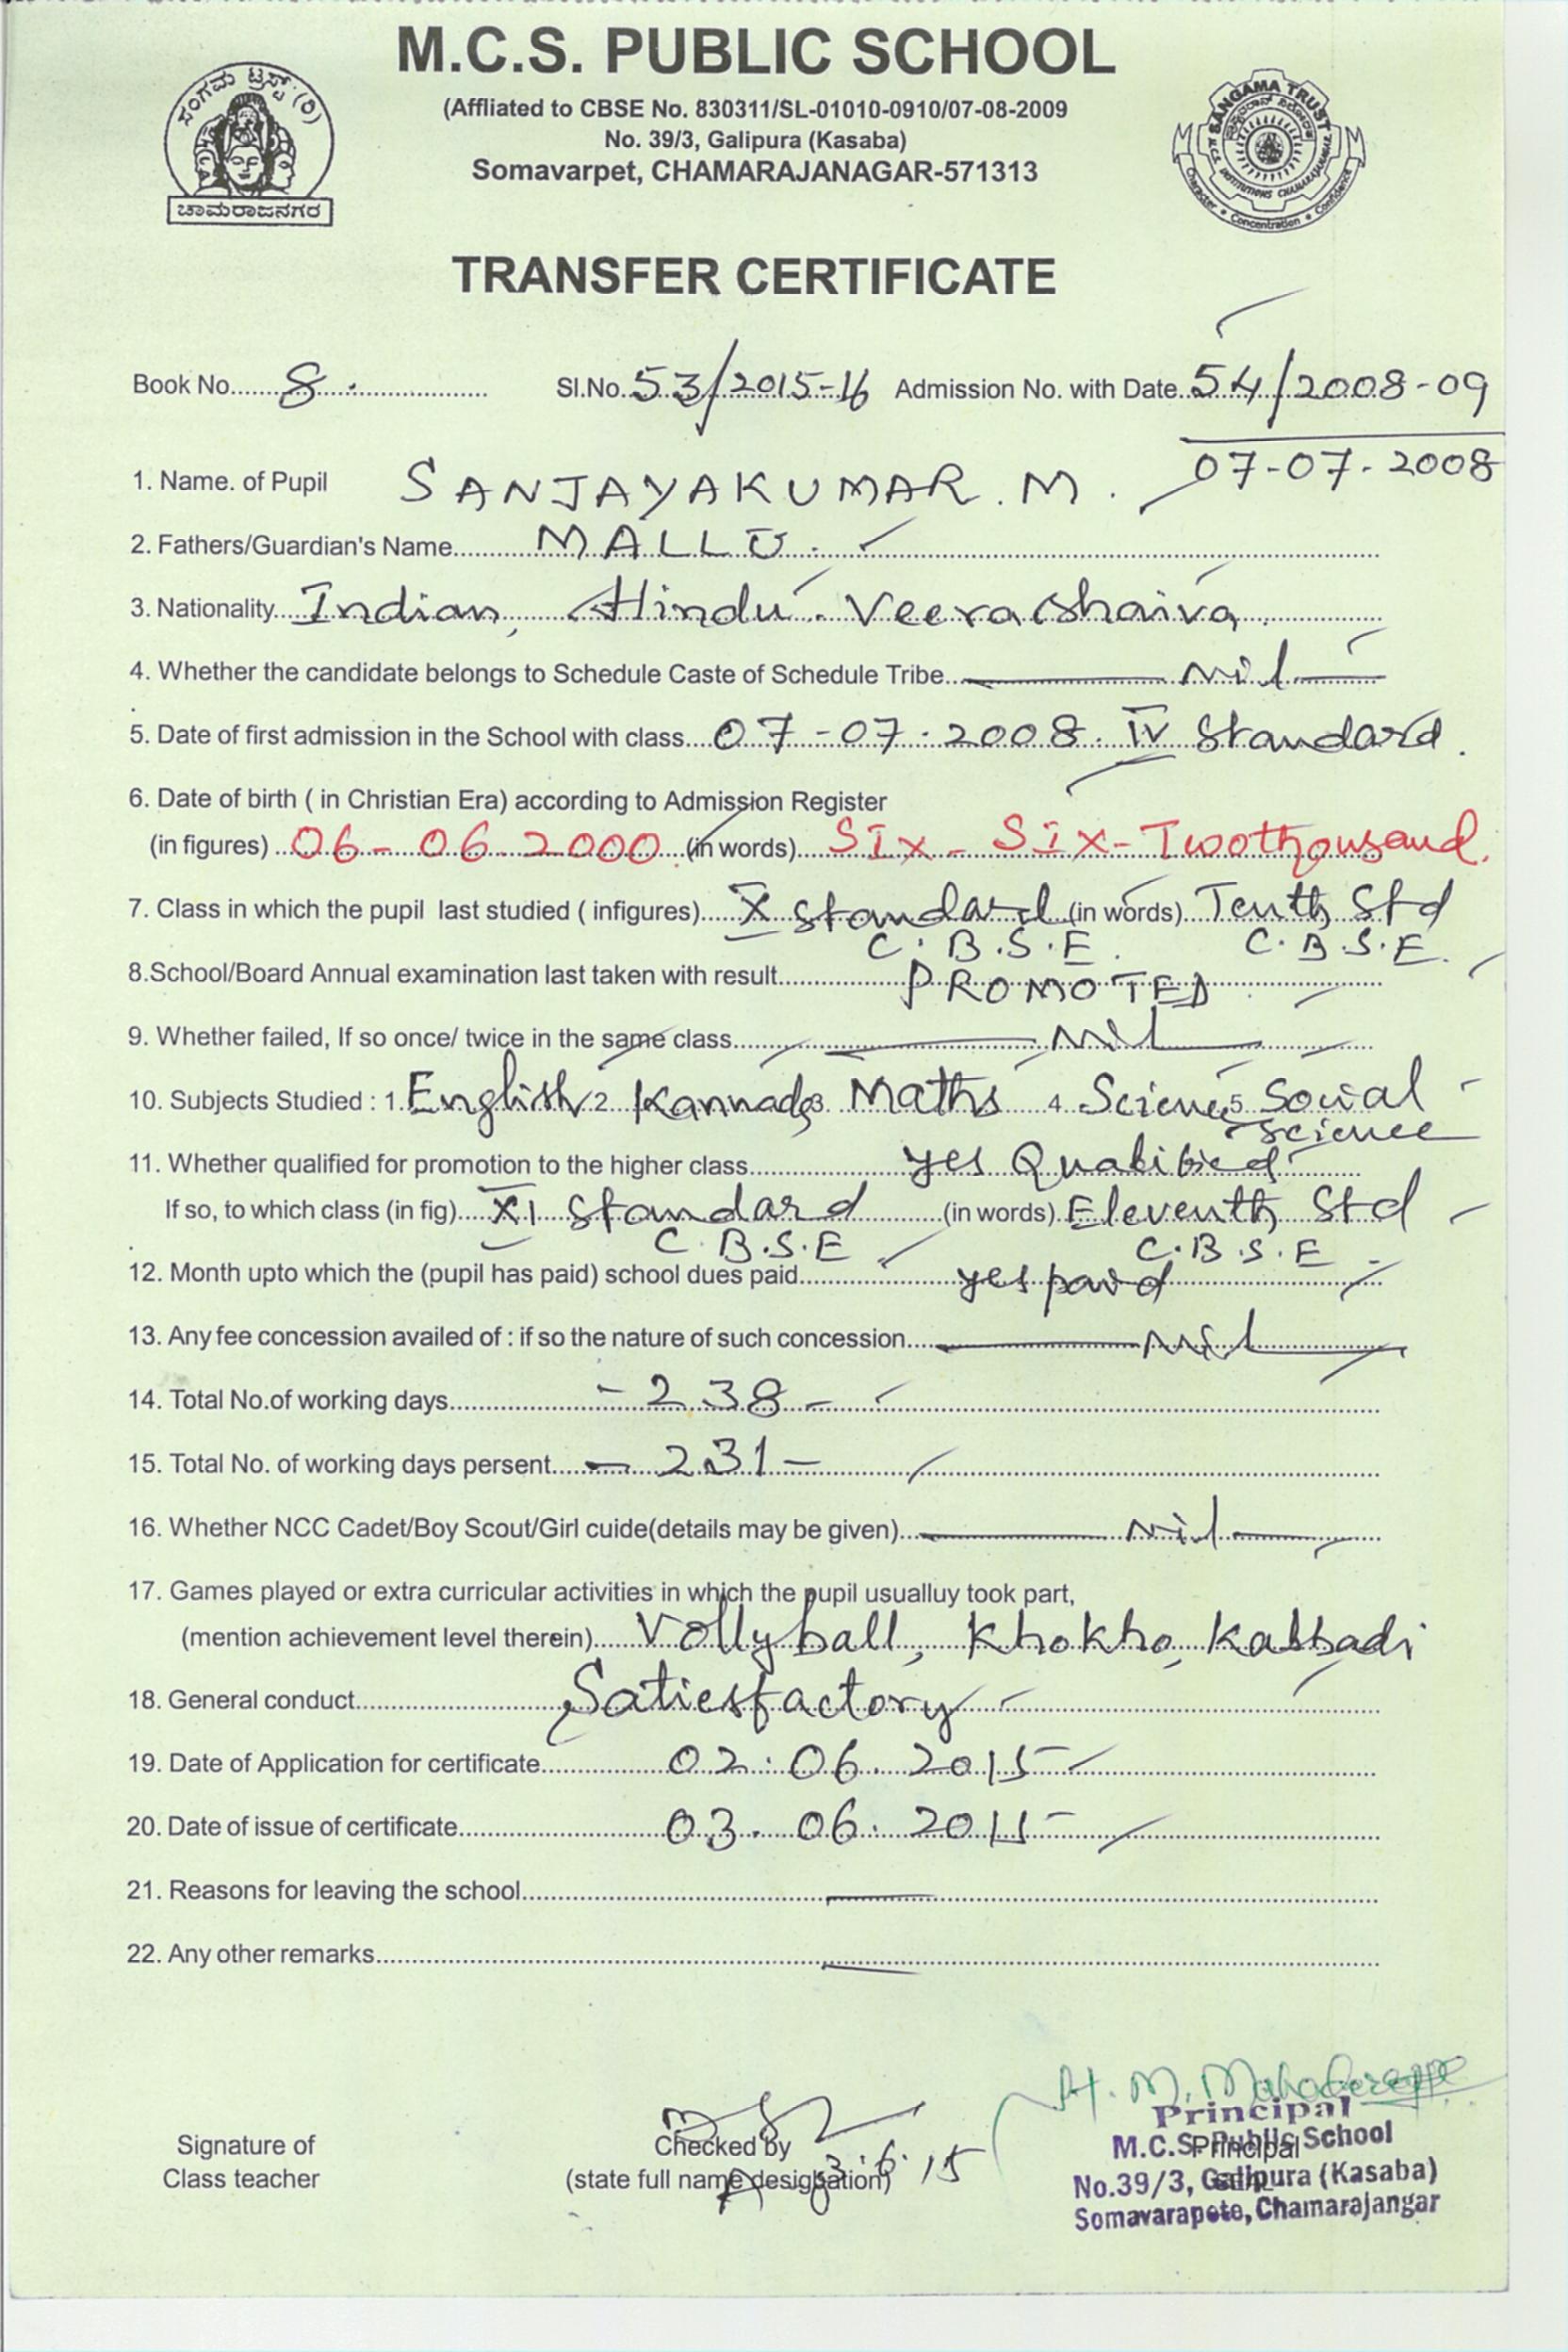 M.C.S. PUBLIC SCHOOL
(Affliated to CBSE No. 830311/SL-01010-0910/07-08-2009
No. 39/3, Galipura (Kasaba)
Somavarpet, CHAMARAJANAGAR-571313
ಸಂಗಮ ಟ್ರಸ್ಟ್ (ರಿ)
ಚಾಮರಾಜನಗರ
SANGAMA TRUST
M.C.S. INSTITUTIONS CHAMARAJANAGAR
Character • Concentration • Confidence
TRANSFER CERTIFICATE
Book No. 8. Sl.No. 53/2015-16 Admission No. with Date 54/2008-09
07-07-2008
1. Name. of Pupil SANJAYAKUMAR. M.
2. Fathers/Guardian's Name MALLU.
3. Nationality Indian, Hindu - Veerashaiva.
4. Whether the candidate belongs to Schedule Caste of Schedule Tribe nil
5. Date of first admission in the School with class 07-07-2008. IV Standard.
6. Date of birth ( in Christian Era) according to Admission Register
(in figures) 06-06-2000 (in words) SIx - SIx - Twothousand.
7. Class in which the pupil last studied ( infigures) X Standard (in words) Tenth Std
C.B.S.E. C.B.S.E.
8.School/Board Annual examination last taken with result PROMOTED
9. Whether failed, If so once/ twice in the same class Nil
10. Subjects Studied : 1. English 2 Kannada 3 Maths 4 Science 5 Social
Science
11. Whether qualified for promotion to the higher class yes Qualified
If so, to which class (in fig) XI Standard (in words) Eleventh Std
C.B.S.E C.B.S.E
12. Month upto which the (pupil has paid) school dues paid yes paid
13. Any fee concession availed of : if so the nature of such concession Nil
14. Total No.of working days - 238 -
15. Total No. of working days persent - 231 -
16. Whether NCC Cadet/Boy Scout/Girl cuide(details may be given) nil
17. Games played or extra curricular activities in which the pupil usualluy took part,
(mention achievement level therein) Vollyball, Khokho, Kabbadi
18. General conduct Satiesfactory
19. Date of Application for certificate 02.06.2015
20. Date of issue of certificate 03.06.2015
21. Reasons for leaving the school
22. Any other remarks
H. M. Mahadevappa
Signature of
Class teacher
Checked by
(state full name desigbation)
3.6.15
Principal
Principal
M.C.S. Public School
No.39/3, Galipura (Kasaba)
Somavarapete, Chamarajangar